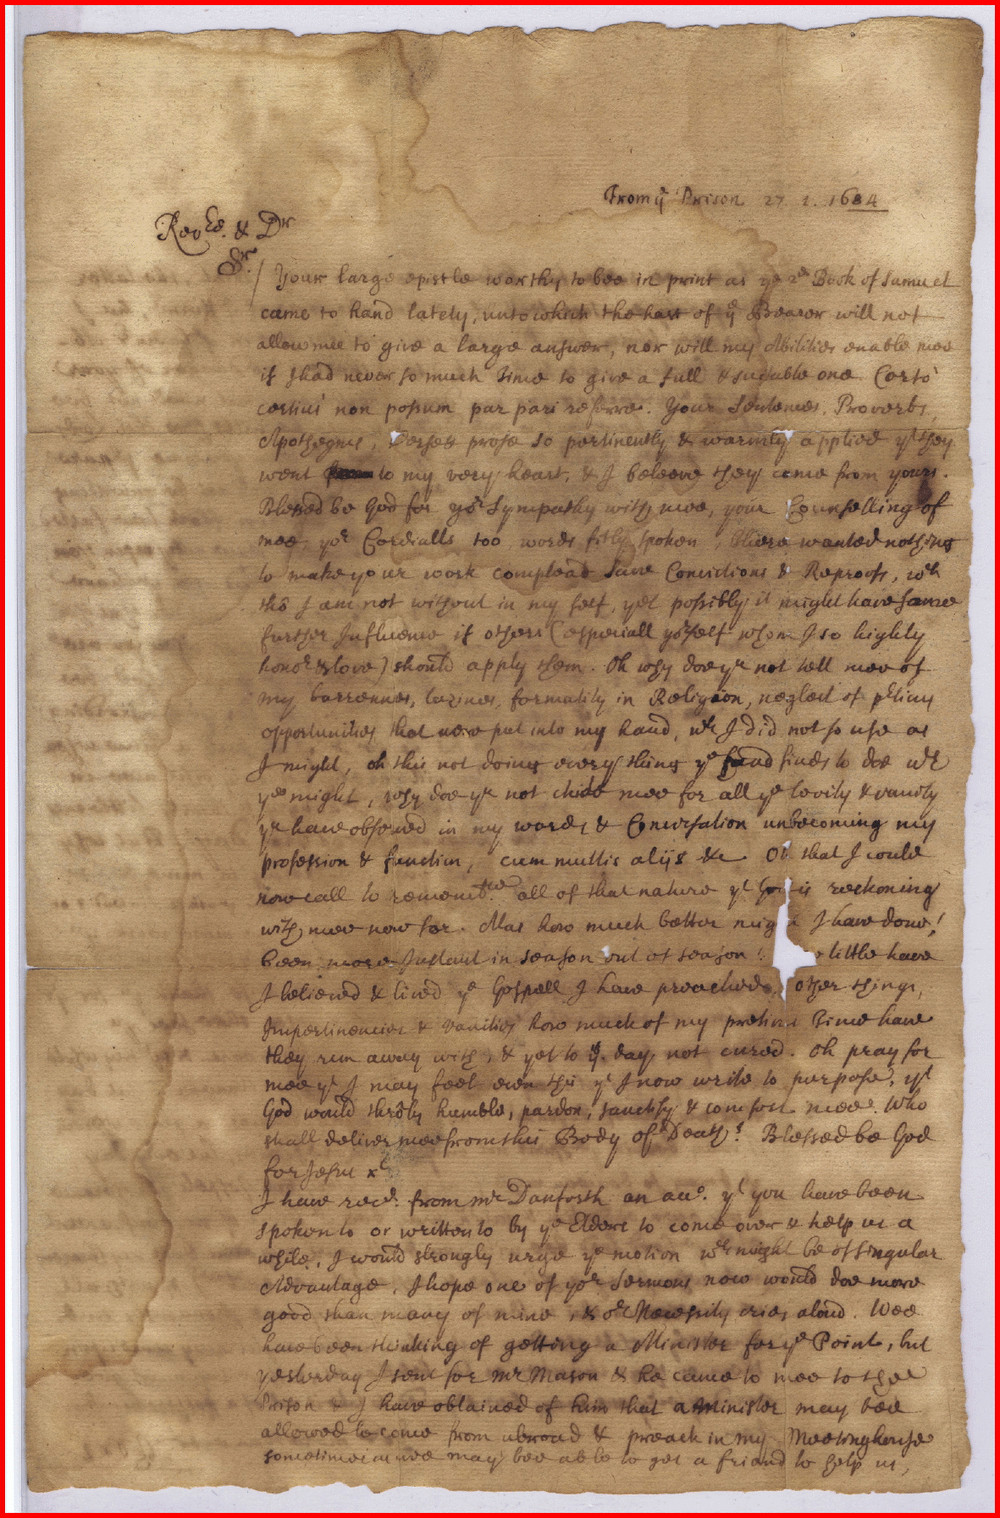 From yͤ Prison 27. 1. 1684
Revᵉᵈ. & Dʳ
Sʳ.
Your large epistle worthy to bee in print as yᵉ 2ᵈ Book of Samuel
came to hand lately, unto which the hast of yͤ Bearer will not
allow mee to give a large answer, nor will my Abilities enable mee
if I had never so much time to give a full & sutable one. Certo
certius non possum par pari referre. Your Sentences, Proverbs,
Apothegms, verse & prose so pertinently & warmly applied yᵗ they
went to my very heart, & I beleeve they came from yours.
Blessed be God for yoʳ Sympathy with mee, your Counselling of
mee, yoʳ Cordialls too words fitly spoken, there wanted nothing
to make your work compleat save Convictions & Reproofs, wᶜʰ
thô I am not without in my self, yet possibly it might have some
further Influence if others (especiall yoʳself whom I so highly
honoʳ & love) should apply them. Oh why doe yᵘ not tell mee of
my barrennes, lazines, formality in Religion, neglect of
opportunities that were put into my hand, wᶜʰ I did not so use as
I might, oh this not doing every thing yᵉ hand finds to doe wᵗʰ
yᵉ might, why doe yᵘ not chide mee for all yᵉ levity & vanity
yᵘ have observed in my words & Conversation unbecoming my
profession & function, cum multis alijs &c. Oh that I could
now call to remembᶜᵉ. all of that nature yᵗ God is reckoning
with mee now for. Alas how much better might I have done!
been more Instant in season out of season! little have
I believed & lived yᵉ Gospell I have preached, other things,
Impertinencies & Vanities how much of my pretious Time have
they run away with, & yet to yͤ day not cured. Oh pray for
mee yᵗ I may feel even this yᵗ I now write to purpose, yᵗ
God would throly humble, pardon, sanctify & comfort mee. Who
shall deliver mee from this Body of Death? Blessed be God
for Jesus xᵗ.
I have recᵈ. from mʳ Danforth an accᵒ. yᵗ you have been
spoken to or written to by yᵉ Elders to come over & help us a
while, I would strongly urge yᵉ motion wᶜʰ might be of singular
Advantage, I hope one of yoʳ Sermons now would doe more
good than many of mine, & oʳ Necessity cries aloud. Wee
have been thinking of getting a Minister for yᵉ Point, but
yesterday I sent for mʳ Mason & he came to mee to the
Prison & I have obtained of him that a Minister may bee
allowed to come from abroad & preach in my Meetinghouse
sometimes as wee may bee able to get a friend to help us,